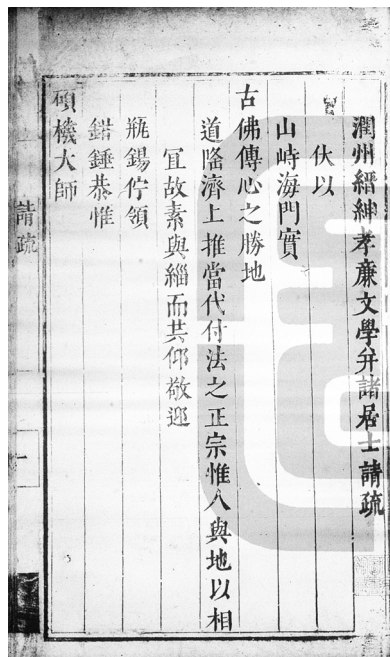 潤州縉紳孝廉文學弁諸居士請疏
伏以
山峙海門實
古佛傳心之勝地
道隆濟上推當代付法之正宗惟人與地以相
宜故素與緇而共仰敬迎
瓶錫佇領
鉗錘恭惟
碩機大師
請疏
一